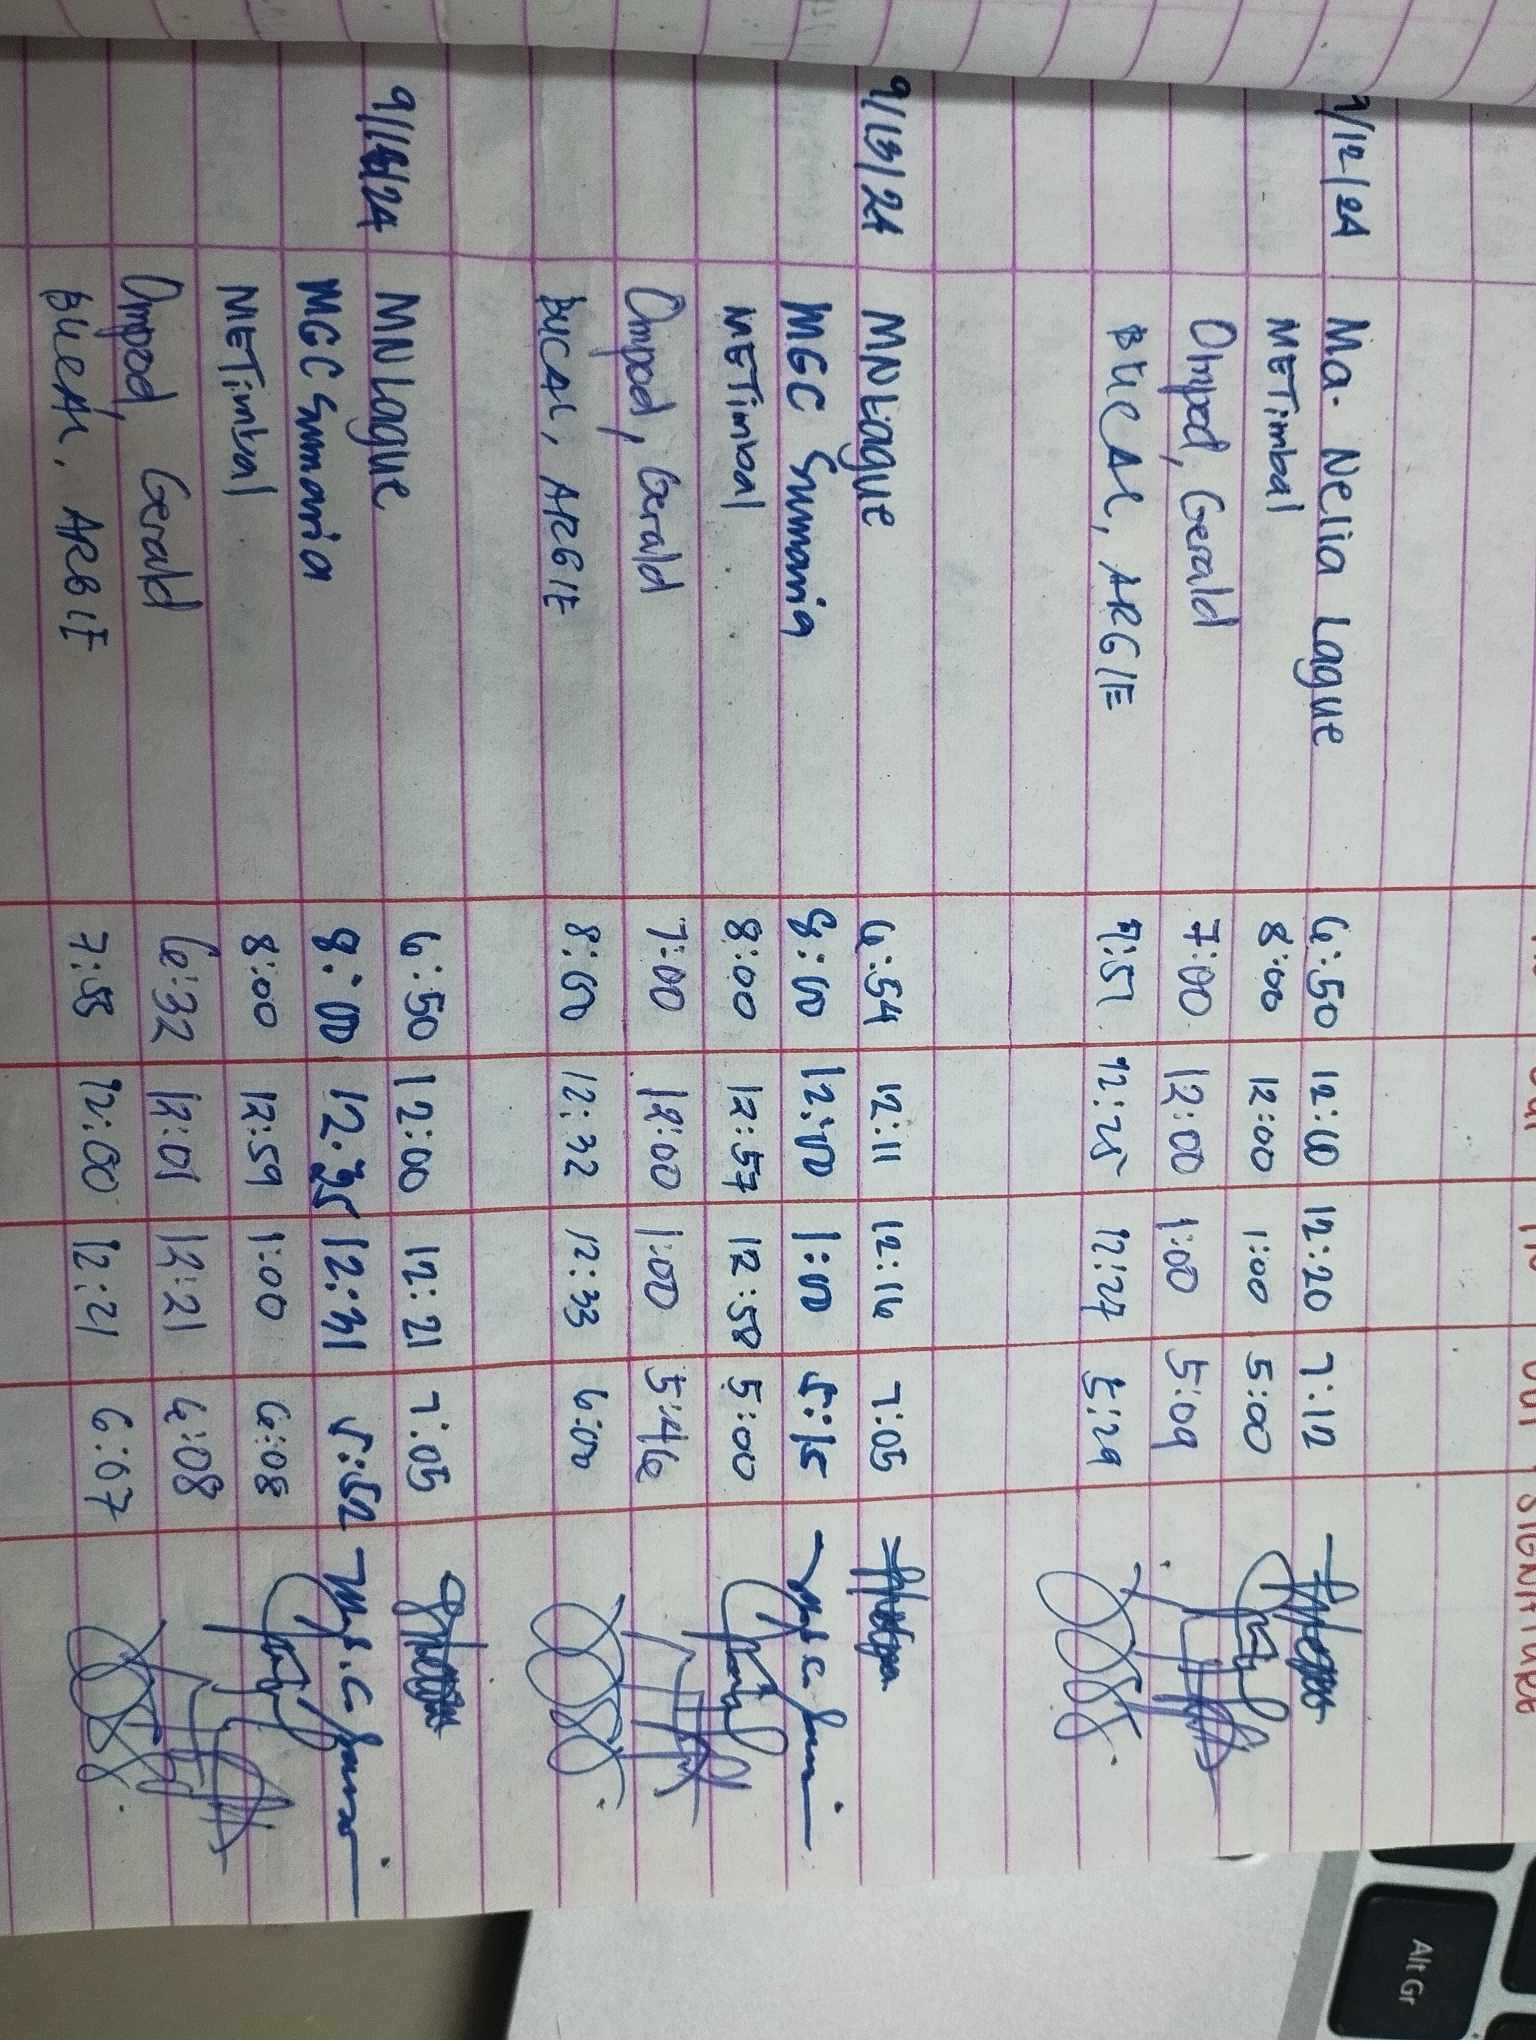 OUT SIGNATURE
9/12/24 Ma. Nelia Lague 6:50 12:10 12:20 7:12
METimbal 8:00 12:00 1:00 5:00
Ompod, Gerald 7:00 12:00 1:00 5:09
BUCAL, ARGIE 7:57 12:25 12:27 5:29
9/13/24 MN Lague 6:54 12:11 12:16 7:05
MGC Sumania 8:00 12:00 1:00 5:15
METimbal 8:00 12:57 12:58 5:00
Ompod, Gerald 7:00 12:00 1:00 5:46
BUCAL, ARGIE 8:00 12:32 12:33 6:00
MN Lague 6:50 12:00 12:21 7:05
MGC Sumania 8:00 12:35 12:31 5:52
METimbal 8:00 12:59 1:00 6:08
Ompod, Gerald 6:32 12:01 12:21 6:08
BUCAL, ARGIE 7:58 12:00 12:21 6:07
Alt Gr